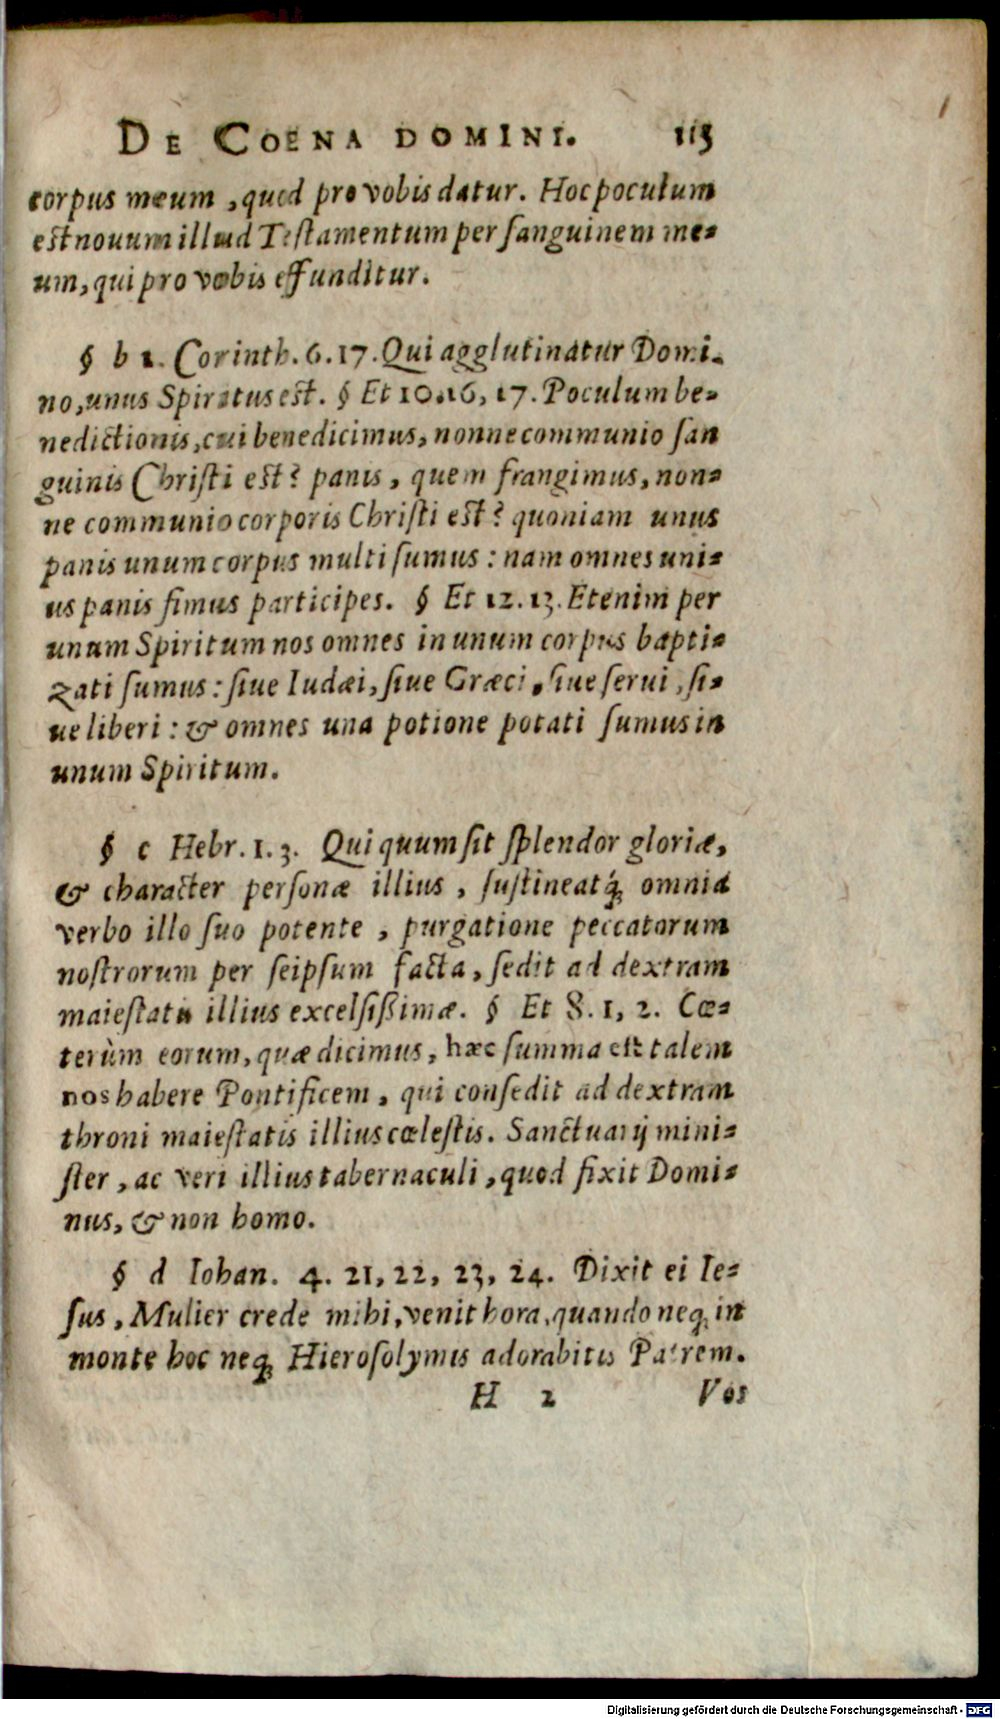 DE COENA DOMINI. 115
corpus meum, quod pro vobis datur. Hoc poculum
est nouum illud Testamentum per sanguinem me-
um, qui pro vobis effunditur.
§ b 1. Corinth. 6. 17. Qui agglutinatur Domi-
no, unus Spiritus est. § Et 10. 16, 17. Poculum be-
nedictionis, cui benedicimus, nonne communio san
guinis Christi est? panis, quem frangimus, non-
ne communio corporis Christi est? quoniam unus
panis unum corpus multi sumus: nam omnes uni-
us panis simus participes. § Et 12. 13. Etenim per
unum Spiritum nos omnes in unum corpus bapti-
zati sumus: siue Iudæi, siue Græci, siue serui, si-
ue liberi: & omnes una potione potati sumus in
unum Spiritum.
§ c Hebr. 1. 3. Qui quum sit splendor gloriæ,
& character personæ illius, sustineatq́; omnia
verbo illo suo potente, purgatione peccatorum
nostrorum per seipsum facta, sedit ad dextram
maiestatis illius excelsißimæ. § Et 8. 1, 2. Cœ-
terùm eorum, quæ dicimus, hæc summa est talem
nos habere Pontificem, qui consedit ad dextram
throni maiestatis illius cœlestis. Sanctuarij mini-
ster, ac veri illius tabernaculi, quod fixit Domi-
nus, & non homo.
§ d Iohan. 4. 21, 22, 23, 24. Dixit ei Ie-
sus, Mulier crede mihi, venit hora, quando neq; in
monte hoc neq; Hierosolymis adorabitis Patrem.
H 2 Vos
Digitalisierung gefördert durch die Deutsche Forschungsgemeinschaft - DFG